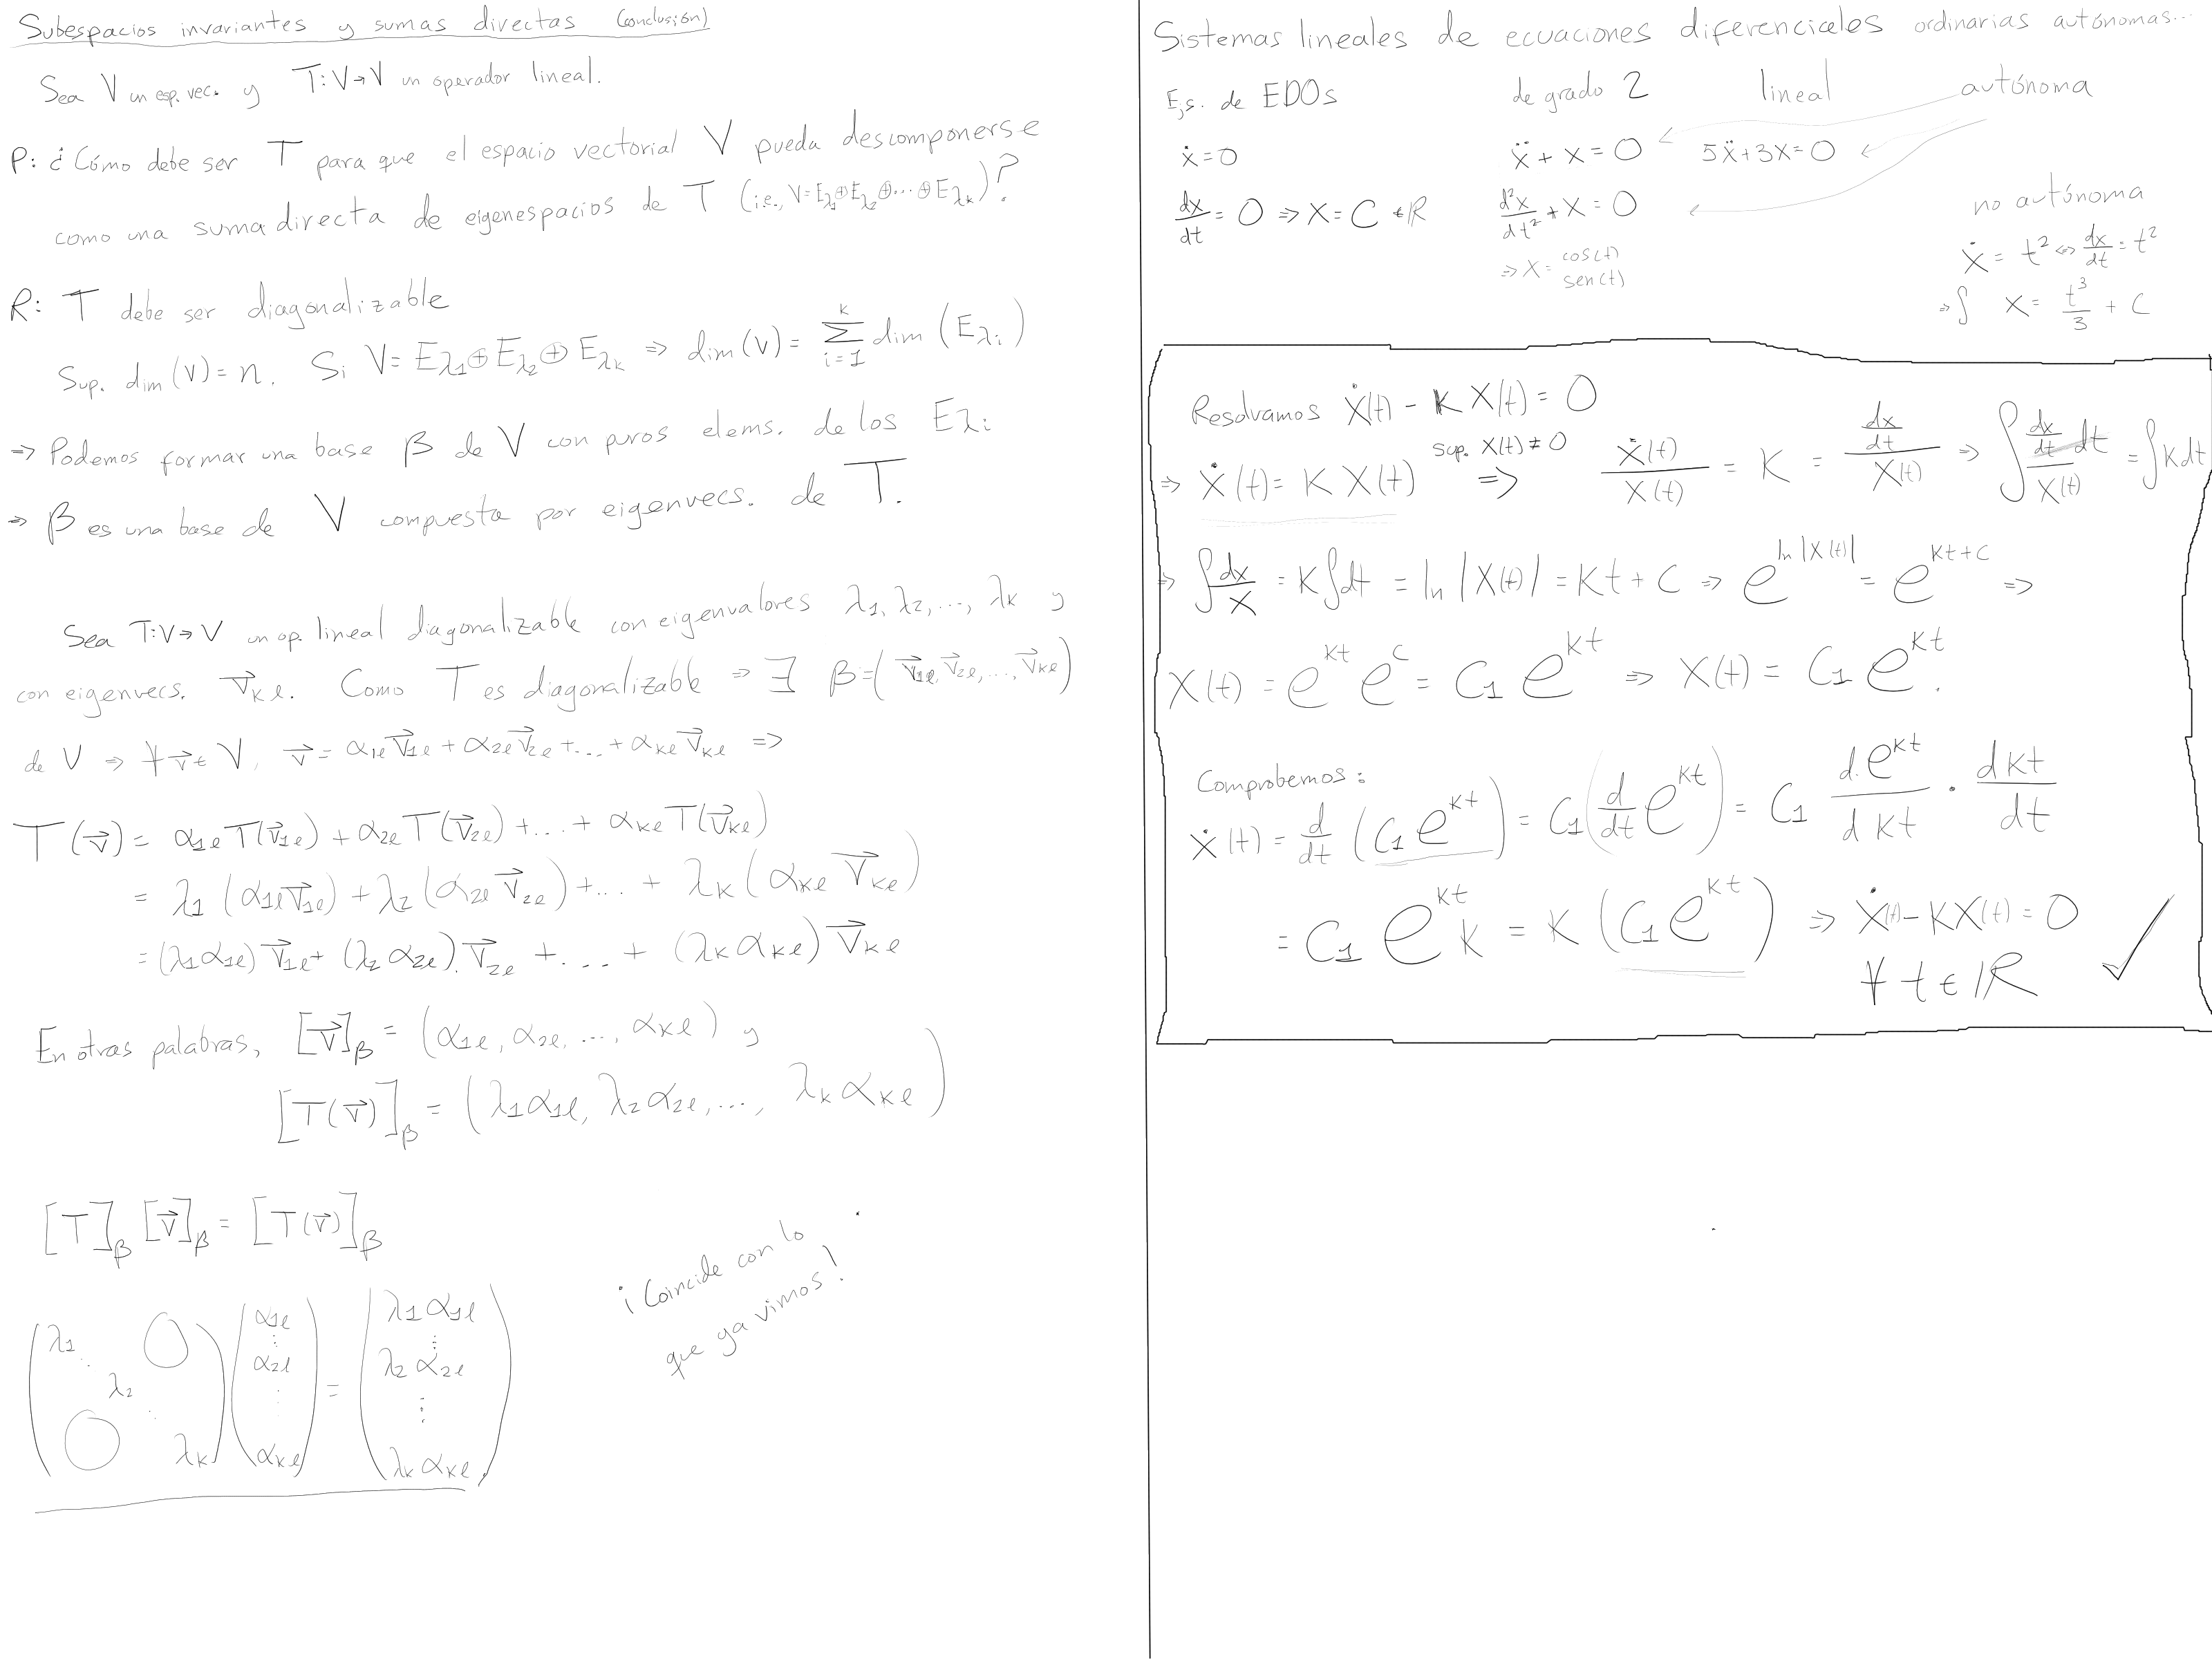 Subespacios invariantes y sumas directas (conclusión)
Sea V un esp. vec. y T: V→V un operador lineal.
P: ¿Cómo debe ser T para que el espacio vectorial V pueda descomponerse
como una suma directa de eigenespacios de T (i.e., V = E_λ1 ⊕ E_λ2 ⊕ ... ⊕ E_λk)?
R: T debe ser diagonalizable
Sup. dim(V) = n. Si V = E_λ1 ⊕ E_λ2 ⊕ E_λk ⇒ dim(V) = Σ_{i=1}^{k} dim(E_λi)
⇒ Podemos formar una base β de V con puros elems. de los E_λi
⇒ β es una base de V compuesta por eigenvecs. de T.
Sea T: V→V un op. lineal diagonalizable con eigenvalores λ1, λ2, ..., λk y
con eigenvecs. v⃗_kl. Como T es diagonalizable ⇒ ∃ β = (v⃗_1l, v⃗_2l, ..., v⃗_kl)
de V ⇒ ∀ v⃗ ∈ V, v⃗ = α_1l v⃗_1l + α_2l v⃗_2l + ... + α_kl v⃗_kl ⇒
T(v⃗) = α_1l T(v⃗_1l) + α_2l T(v⃗_2l) + ... + α_kl T(v⃗_kl)
= λ1 (α_1l v⃗_1l) + λ2 (α_2l v⃗_2l) + ... + λk (α_kl v⃗_kl)
= (λ1 α_1l) v⃗_1l + (λ2 α_2l) v⃗_2l + ... + (λk α_kl) v⃗_kl
En otras palabras, [v⃗]_β = (α_1l, α_2l, ..., α_kl) y
[T(v⃗)]_β = (λ1 α_1l, λ2 α_2l, ..., λk α_kl)
[T]_β [v⃗]_β = [T(v⃗)]_β
¡Coincide con lo
que ya vimos!
(λ1 ⋱ 0 λ2 ⋱ 0 λk) (α_1l ⋮ α_2l ⋮ α_kl) = (λ1 α_1l ⋮ λ2 α_2l ⋮ λk α_kl)
Sistemas lineales de ecuaciones diferenciales ordinarias autónomas...
Ejs. de EDOs de grado 2 lineal autónoma
ẋ = 0 ẍ + x = 0 5ẍ + 3x = 0
dx/dt = 0 ⇒ x = C ∈ ℝ d²x/dt² + x = 0
⇒ x = cos(t)
sen(t)
no autónoma
ẋ = t² ⇔ dx/dt = t²
⇒ ∫ x = t³/3 + C
Resolvamos ẋ(t) - K x(t) = 0
⇒ ẋ(t) = K x(t) sup. x(t) ≠ 0 ⇒ ẋ(t)/x(t) = K = (dx/dt)/x(t) ⇒ ∫ (dx/dt dt)/x(t) = ∫ K dt
⇒ ∫ dx/x = K∫dt = ln|x(t)| = Kt + C ⇒ e^{ln|x(t)|} = e^{Kt+C} ⇒
x(t) = e^{Kt} e^{C} = C1 e^{Kt} ⇒ x(t) = C1 e^{Kt}.
Comprobemos:
ẋ(t) = d/dt (C1 e^{Kt}) = C1 (d/dt e^{Kt}) = C1 d e^{Kt}/d Kt · dKt/dt
= C1 e^{Kt} K = K (C1 e^{Kt}) ⇒ ẋ(t) - K x(t) = 0
∀ t ∈ ℝ ✓